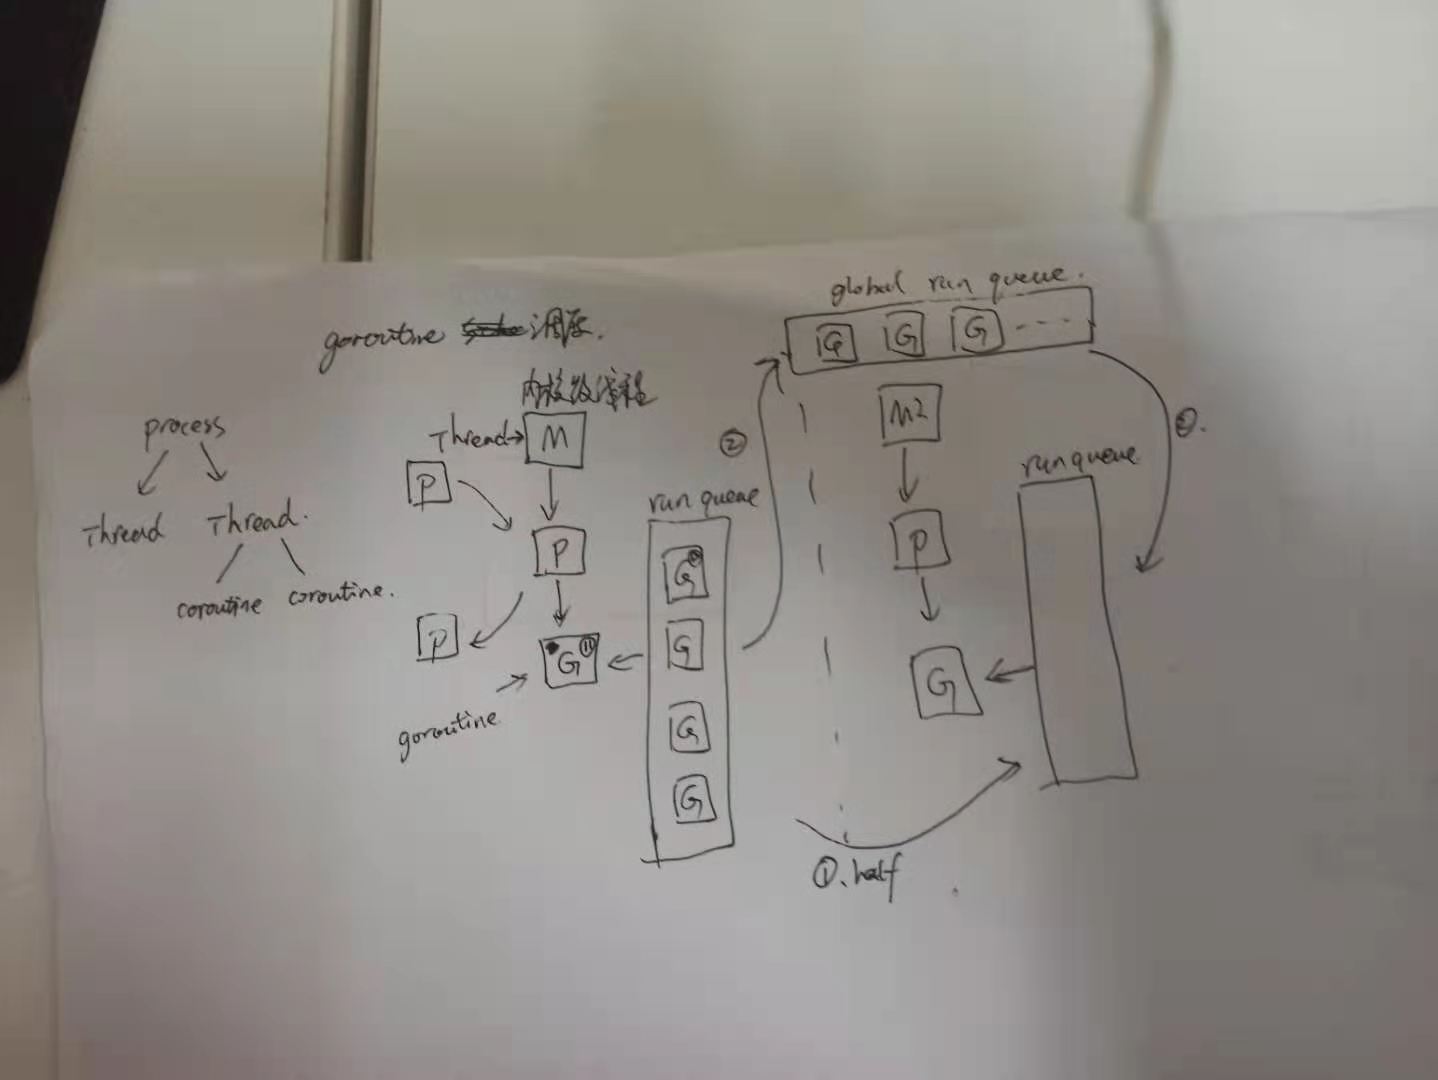 goroutine 调度.
process
Thread Thread.
coroutine coroutine.
内核级线程
Thread→ M
P
P
P
G
goroutine
run queue
G
G
G
G
②
global run queue.
G G G ----
M2
P
G
run queue
②.
①. half